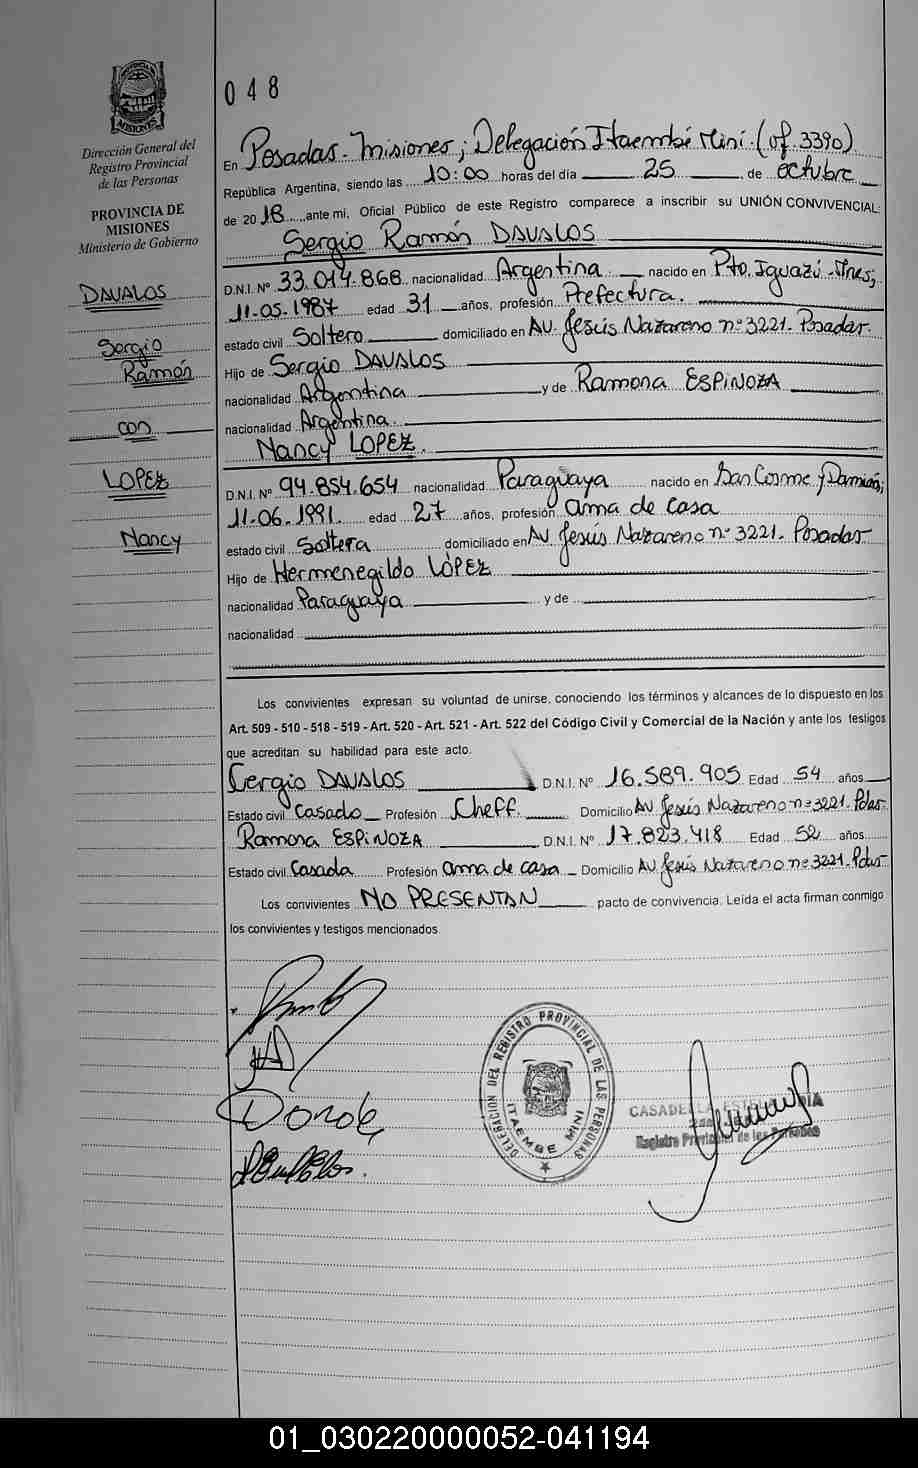 Dirección General del
Registro Provincial
de las Personas
PROVINCIA DE
MISIONES
Ministerio de Gobierno
DAVALOS
Sergio
Ramón
con
LOPEZ
Nancy
048
En Posadas - Misiones; Delegación Itaembé Miní. (of. 3390)
República Argentina, siendo las 10:00 horas del día 25 de octubre
de 2018 ante mi, Oficial Público de este Registro comparece a inscribir su UNIÓN CONVIVENCIAL:
Sergio Ramón DAVALOS
D.N.I. Nº 33.014.868 nacionalidad Argentina nacido en Pto. Iguazú - Mnes;
11.05.1987 edad 31 años, profesión Prefectura.
estado civil Soltero domiciliado en AV. Jesús Nazareno nº 3221. Posadas.
Hijo de Sergio DAVALOS
nacionalidad Argentina y de Ramona ESPINOZA
nacionalidad Argentina.
Nancy LOPEZ.
D.N.I. Nº 94.854.654 nacionalidad Paraguaya nacido en San Cosme y Damián;
11.06.1991. edad 27 años, profesión ama de casa
estado civil Soltera domiciliado en AV. Jesús Nazareno nº 3221. Posadas
Hijo de Hermenegildo LÓPEZ
nacionalidad Paraguaya y de
nacionalidad
Los convivientes expresan su voluntad de unirse, conociendo los términos y alcances de lo dispuesto en los
Art. 509 - 510 - 518 - 519 - Art. 520 - Art. 521 - Art. 522 del Código Civil y Comercial de la Nación y ante los testigos
que acreditan su habilidad para este acto.
Sergio DAVALOS D.N.I. Nº 16.589.905 Edad 54 años
Estado civil Casado Profesión Cheff. Domicilio AV. Jesús Nazareno nº 3221. Pdas.
Ramona ESPINOZA D.N.I. Nº 17.823.418 Edad 52 años
Estado civil Casada Profesión ama de casa Domicilio AV. Jesús Nazareno nº 3221. Pdas
Los convivientes NO PRESENTAN pacto de convivencia. Leída el acta firman conmigo
los convivientes y testigos mencionados.
DELEGACION DEL REGISTRO PROVINCIAL DE LAS PERSONAS
ITAEMBE MINI
CASADEI
Registro Provincial de las Personas
01_030220000052-041194